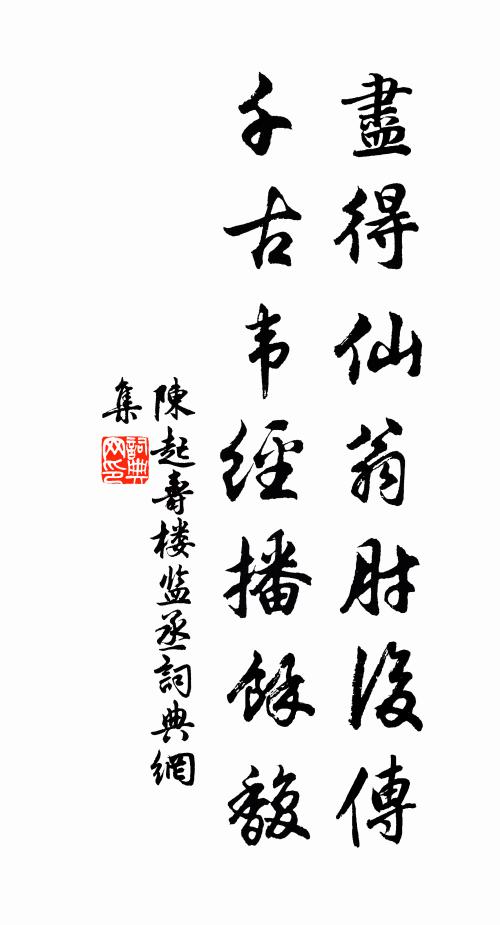 盡得仙翁肘後傳
千古韦經播餘馥
陳起壽楼监丞詞典網
集
詞典网印